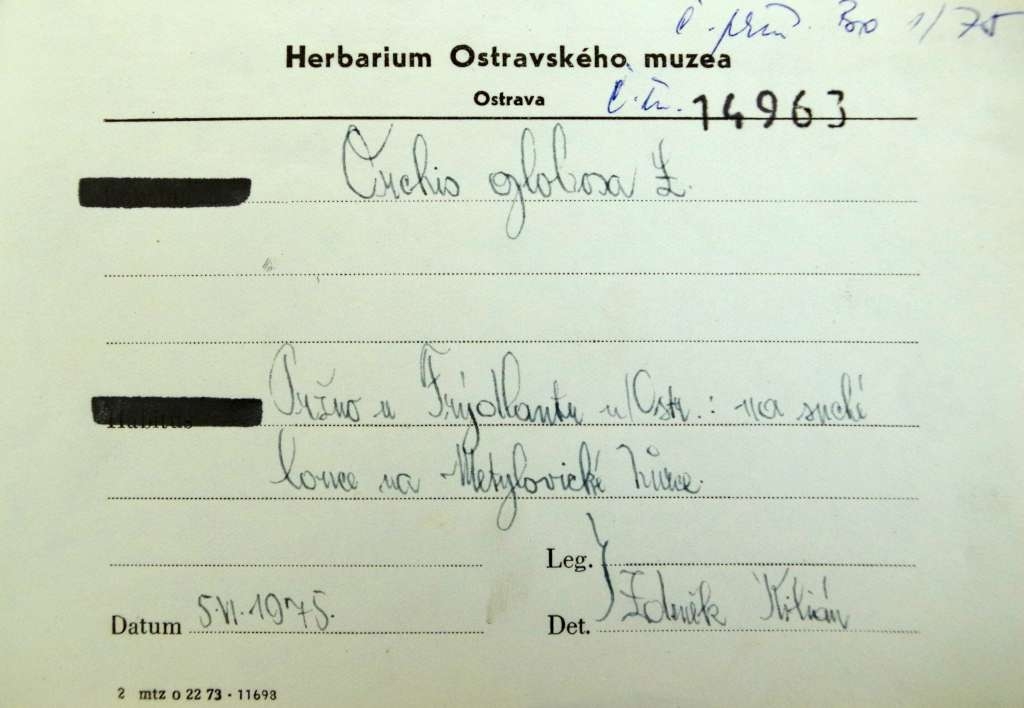 č. přír. Bo 1/75
Herbarium Ostravského muzea
Ostrava
14963
Orchis globosa L.
Pržno u Frýdlantu n/Ostr.: na suché
louce na Metylovické hůrce.
Leg.
Datum 5.VI.1975.
Det. Zdeněk Kilián
2 mtz o 22 73 - 11698